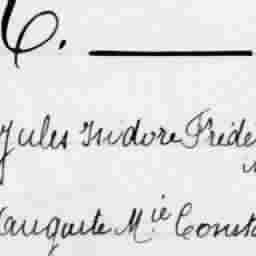 Jules Isidore Frédé
Marguerite M.ie Const